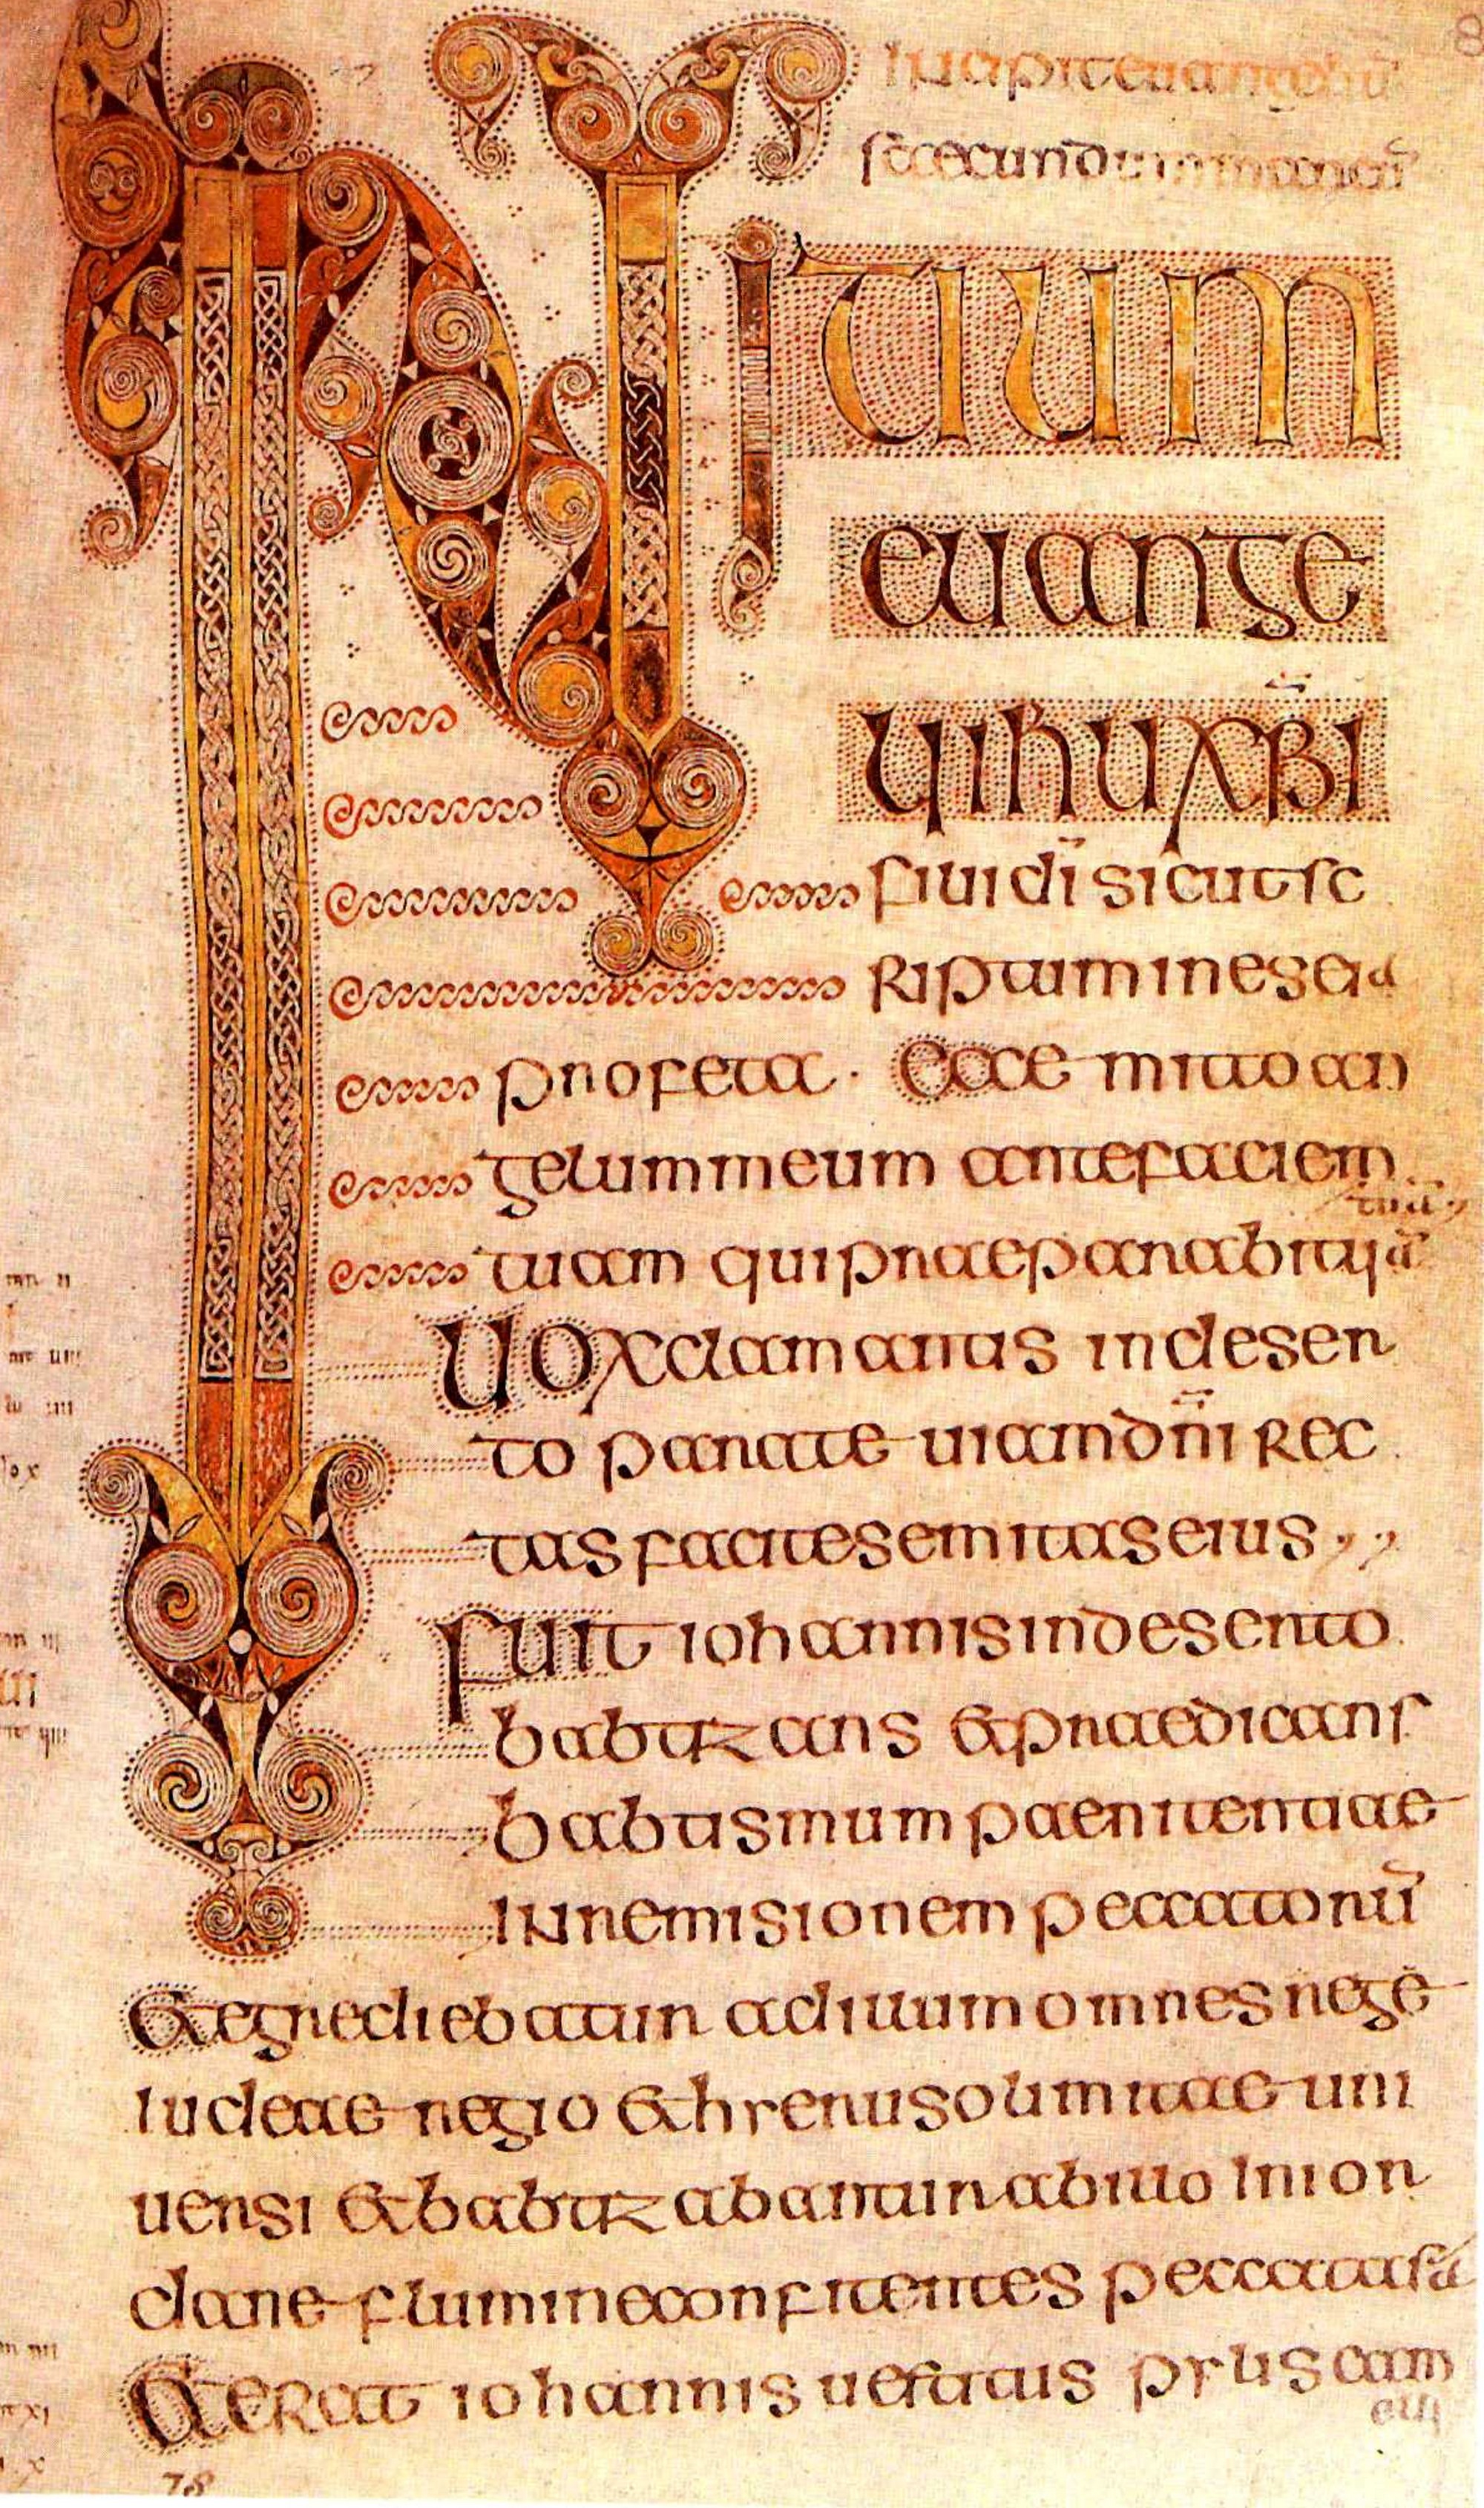 Incipit euangeliū
scecundum marcū
INITIUM
euange
lii ihu xp̄i
filii dī sicut sc
riptum in eseia
profeta · Ecce mitto an
gelum meum ante faciem
tuā
tuam qui praeparabit uiā
Uox clamantis in deser
to parate uiam dn̄i rec
tas facite semitas eius
fuit iohannis in deserto
babtizans & praedicans
babtismum paenitentiae
in remisionem peccatorū
& egrediebatur ad illum omnes rege
iudeae regio & hyerusolimitae uni
uersi & babtizabantur ab illo in ior
dane flumine confitentes peccata sa
& erat iohannis uestitus pylis cam
eli
78